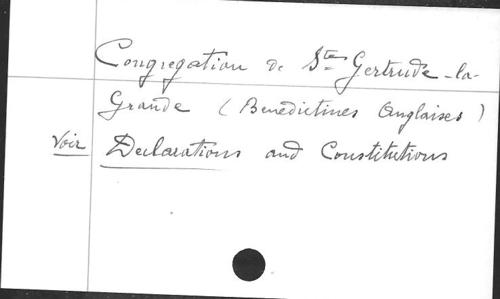 Congregation de Ste Gertrude-la-
Grande (Benedictines Anglaises)
Voir Declarations and Constitutions